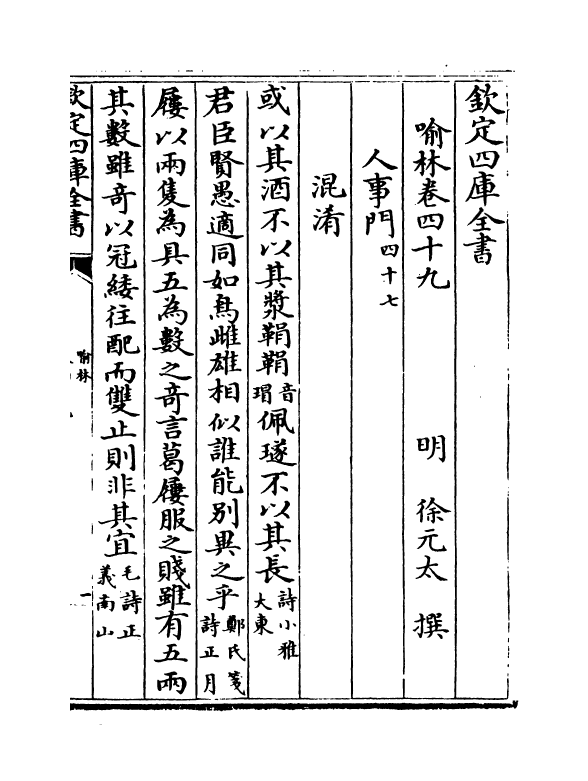 欽定四庫全書
喻林卷四十九 明 徐元太 撰
人事門四十七
混淆
或以其酒不以其漿鞙鞙音瑁佩璲不以其長詩小雅大東
君臣賢愚適同如鳥雌雄相似誰能別異之乎鄭氏箋詩正月
屨以兩隻為具五為數之奇言葛屨服之賤雖有五兩
其數雖奇以冠緌往配而雙止則非其宜毛詩正義南山
欽定四庫全書
喻林
一